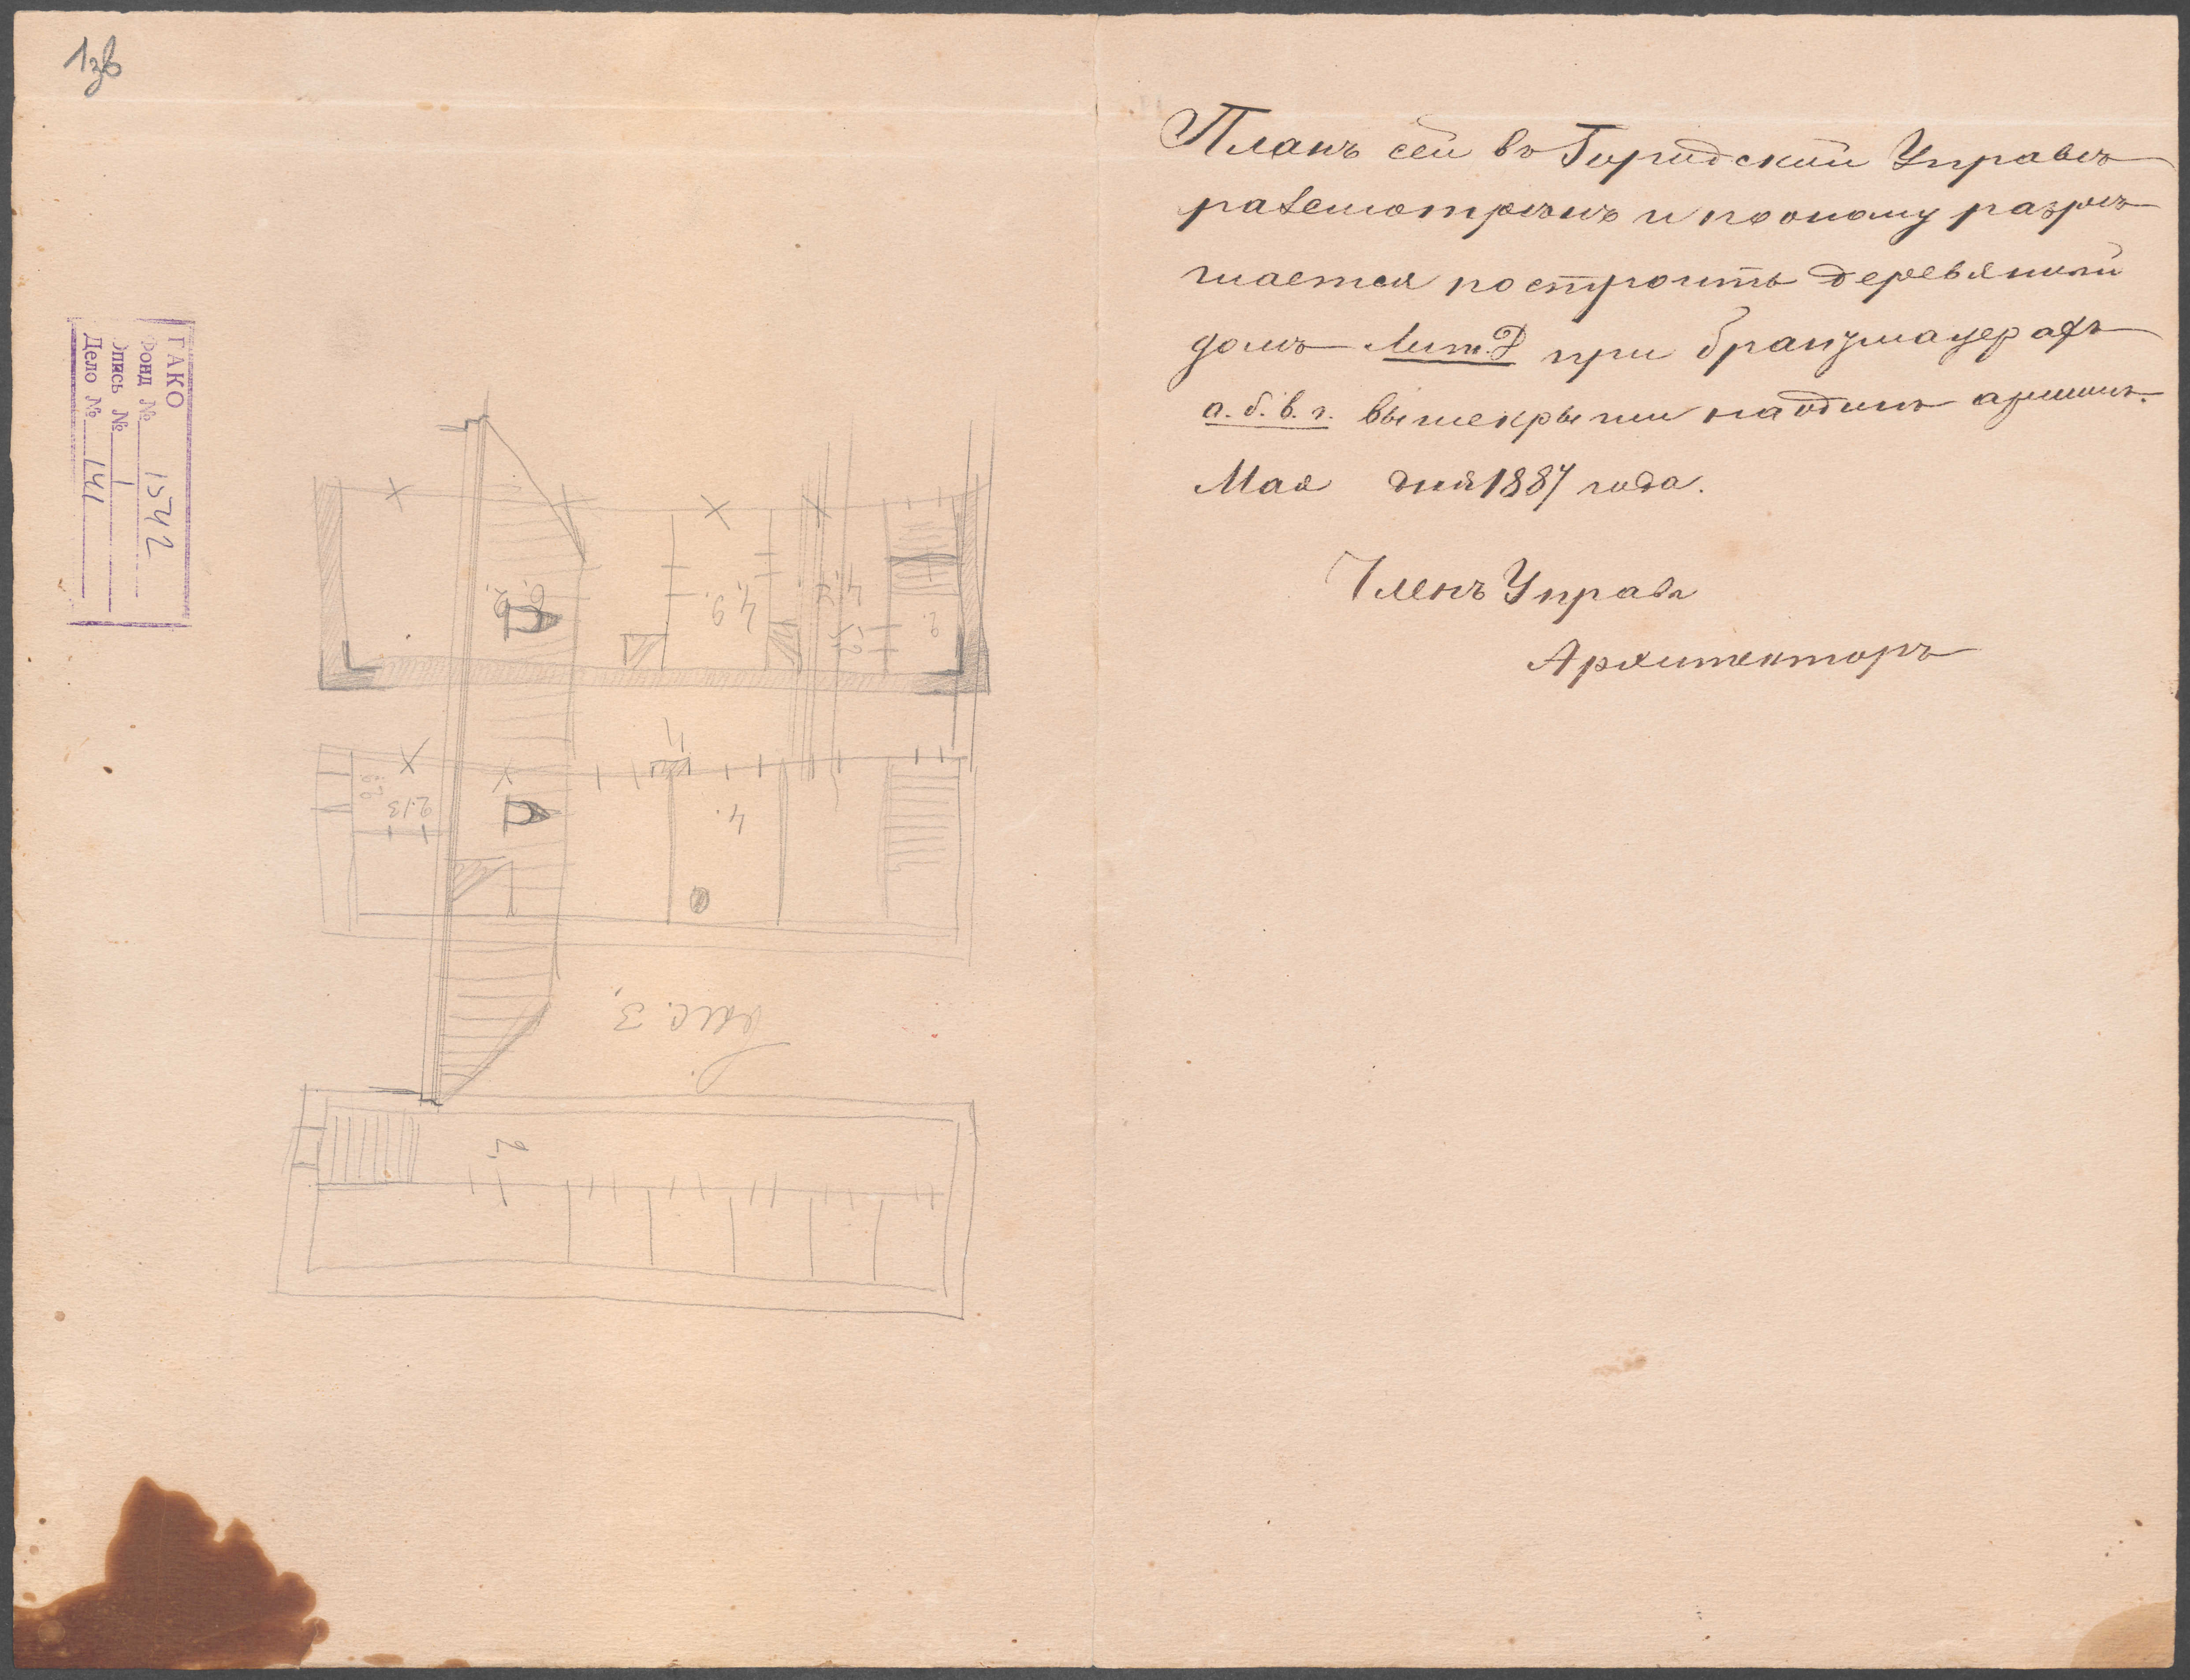 1зв
ГАКО
Фонд № 1542
Опись № 1
Дело № 141
6.
2.
4.9.
4.
2.
4.
2.13
выс. 3.
2.
Планъ сей въ Городской Управѣ
разсмотрѣнъ и по оному разрѣ
шается построить деревянный
домъ Лит. Д при брандмауерахъ
а. б. в. г. выше крыши на одинъ аршинъ.
Мая дня 1887 года.
Членъ Управы
Архитекторъ